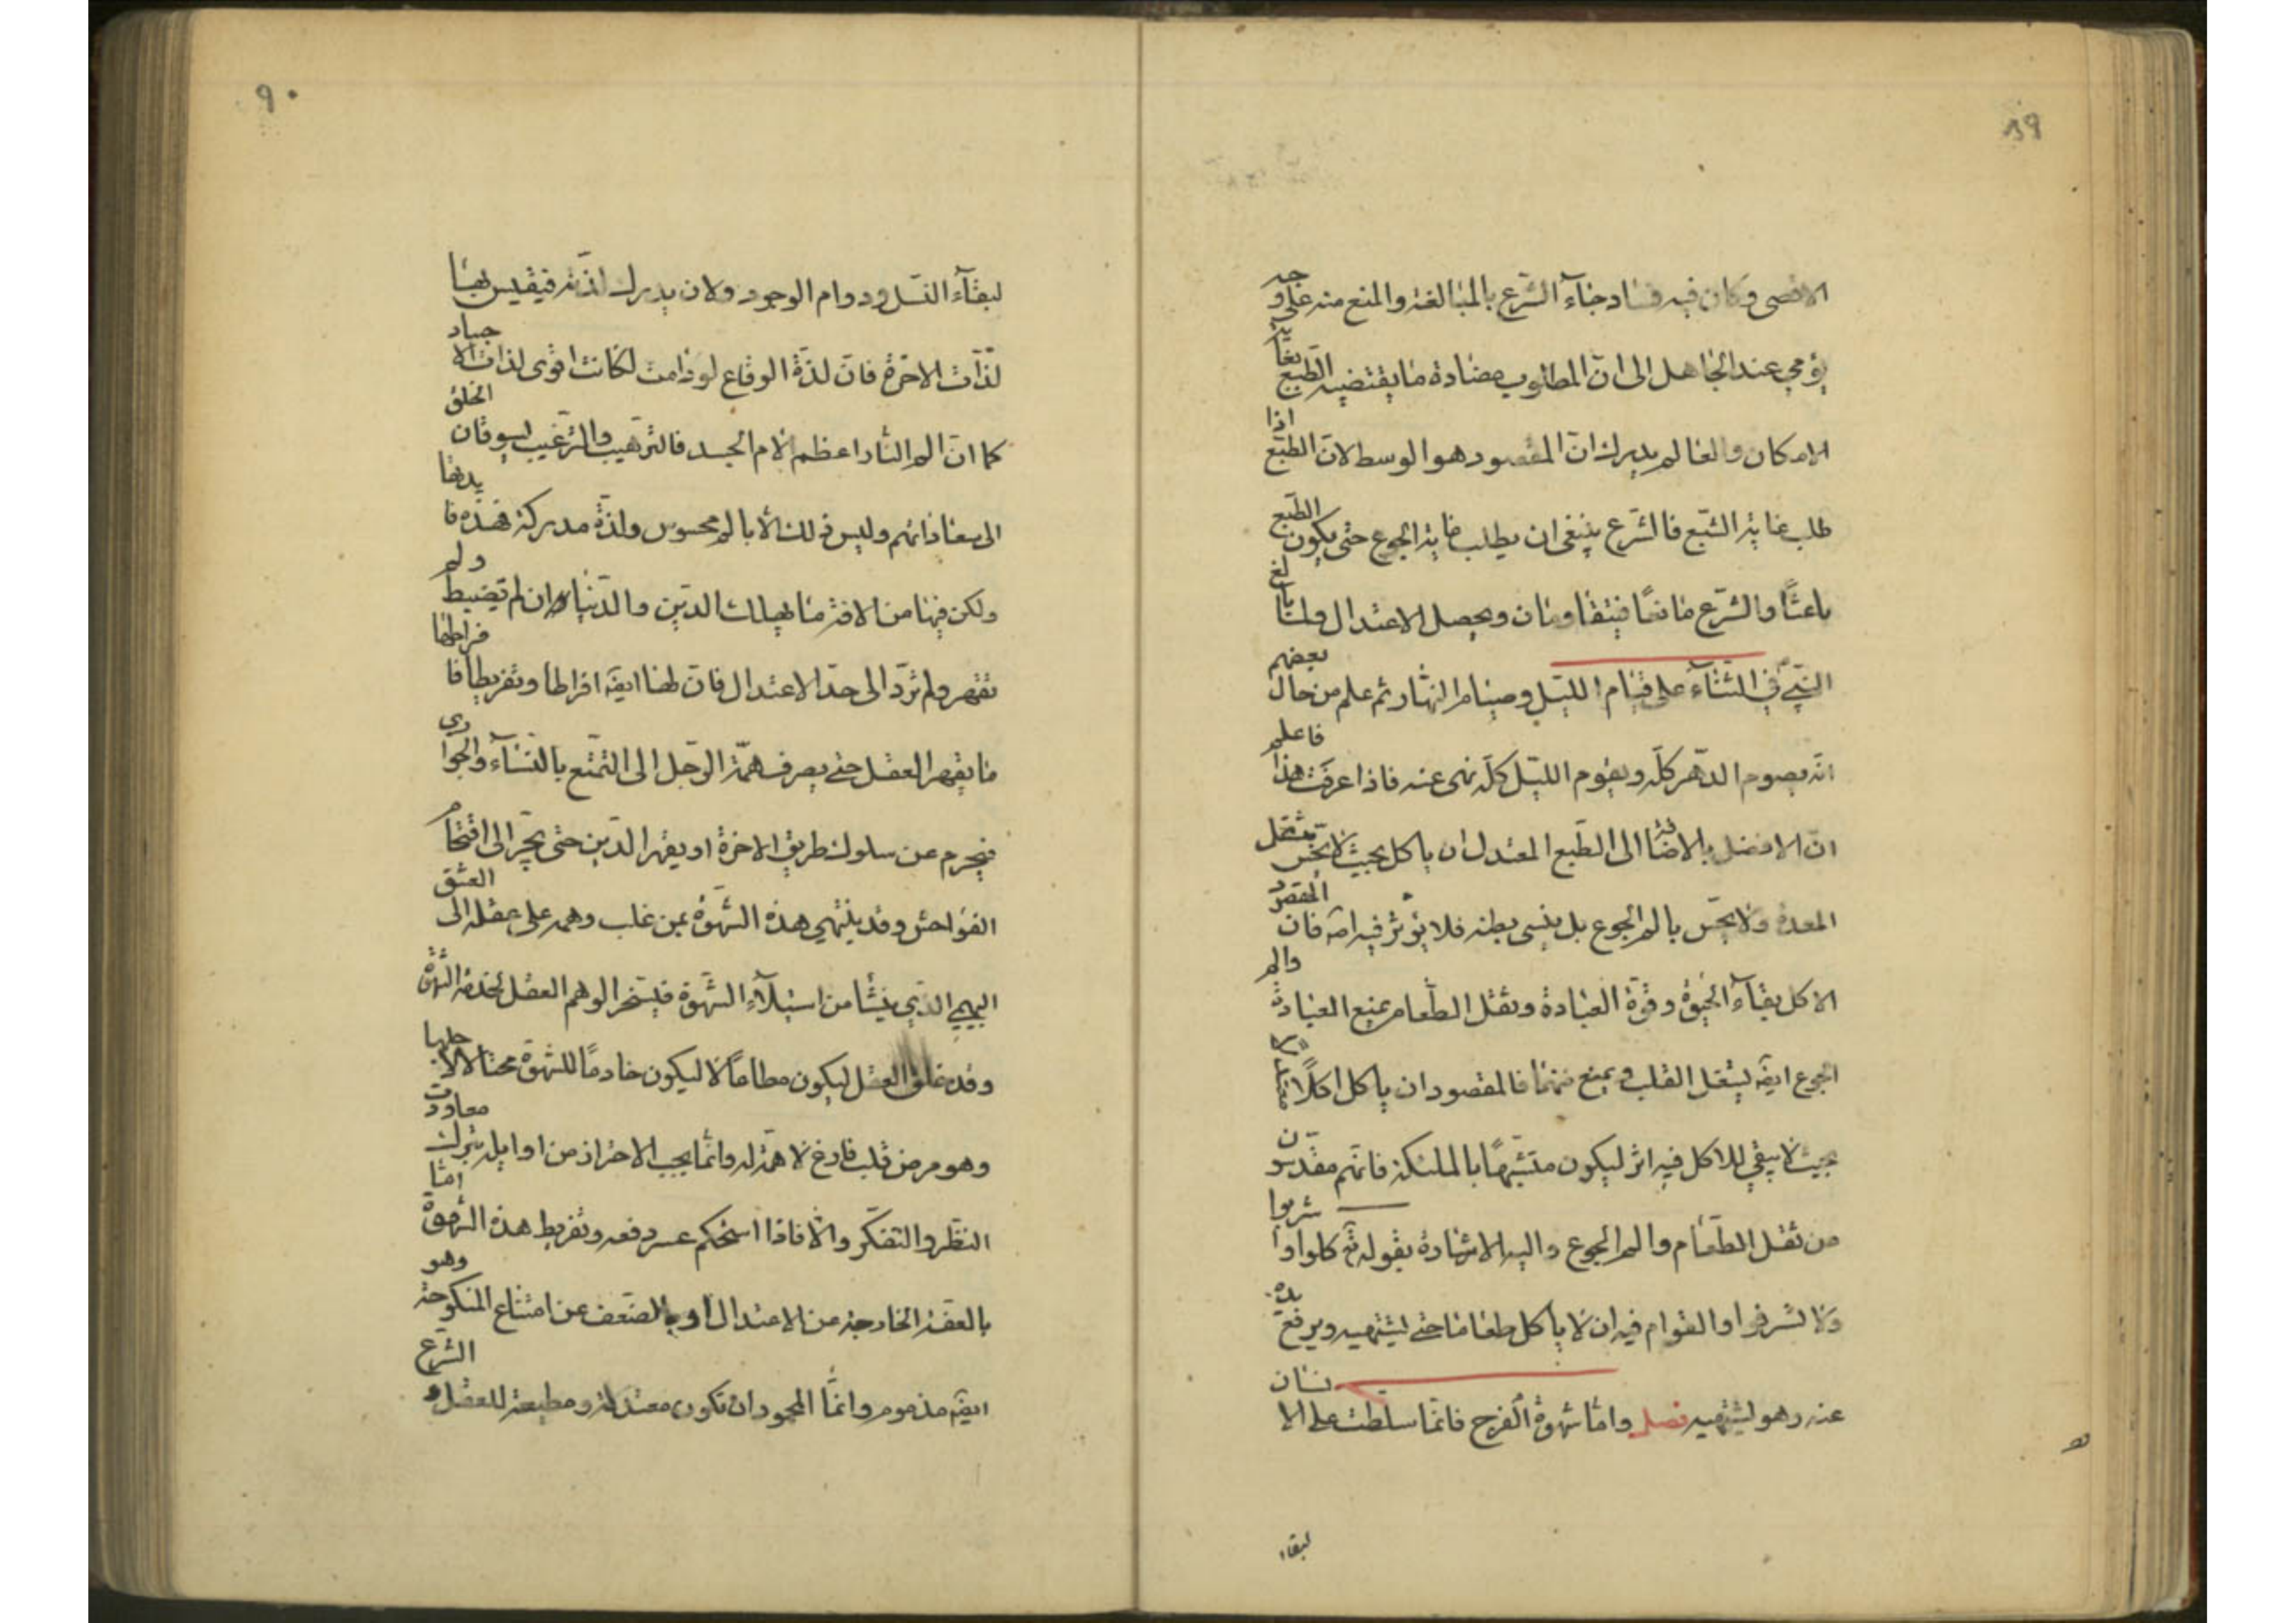 ٨٩
الاقصى وكان فيه فساد جاء الشرع بالمبالغة والمنع منه على وجه
يؤمي عند الجاهل الى ان المطلوب مضادة ما يقتضيه الطبع بغاية
الامكان والعالم يدرك ان المقصود هو الوسط لان الطبع اذا
طلب غاية الشبع فالشرع ينبغي ان يطلب غاية الجوع حتى يكون الطبع
باعثًا والشرع مانعًا فيتقاومان ويحصل الاعتدال ولما بالغ
النبي في الثناء على قيام الليل وصيام النهار ثم علم من حال بعضهم
انه يصوم الدهر كله ويقوم الليل كله نهى عنه فاذا عرفت هذا فاعلم
ان الافضل بالاضافة الى الطبع المعتدل ان ياكل بحيث لا يحس بثقل
المعدة ولا يحس بالم الجوع بل ينسى بطنه فلا يؤثر فيه اصه فان المقصود
الاكل بقاء الحيوة وقوة العبادة وثقل الطعام يمنع العبادة والم
الجوع ايضه يشغل القلب ويمنع منهما فالمقصود ان ياكل اكلًا معتدلا
بحيث لا يبقي للاكل فيه اثر ليكون متشبهًا بالملئكة فانهم مقدسون
من ثقل الطعام والم الجوع واليه الاشارة بقوله تع كلوا واشربوا
ولا تسرفوا والقوام فيه ان لا ياكل طعاما حتى يشتهيه ويرفع يده
عنه وهو يشتهيه فصل واما شهوة الفرج فانما سلطت على الانسان
لبقاء
٩٠
لبقاء النسل ودوام الوجود ولان يدرك لذته فيقيس بها
لذات الاخرة فان لذة الوقاع لو دامت لكانت اقوى لذات الاجساد
كما ان الم النار اعظم الام الجسد فالترهيب والترغيب يسوقان الخلق
الى سعاداتهم وليس ذلك الا بالم محسوس ولذة مدركة فهذه فايدتها
ولكن فيها من الافة ما يهلك الدين والدنيا ان لم تضبط ولم
تقهر ولم ترد الى حد الاعتدال فان لها ايضه افراطا وتفريطا فافراطها
ما يقهر العقل حتى يصرف همة الرجل الى التمتع بالنساء والجواري
فيحرم عن سلوك طريق الاخرة او يقهر الدين حتى يجر الى اقتحام
الفواحش وقد ينتهي هذه الشهوة بمن غلب وهمه على عقله الى العشق
البهيمي الذي ينشأ من استيلاء الشهوة فيسخر الوهم العقل لخدمة الشهوة
وقد خلق العقل ليكون مطاعًا لا ليكون خادمًا للشهوة محتالا لاجلها
وهو مرض قلب فارغ لا همة له وانما يجب الاحتراز من اوايله بترك معاودة
النظر والتفكر والا فاذا استحكم عسر دفعه وتفريط هذه الشهوة اما
بالعفة الخارجة عن الاعتدال او بالضعف عن امتناع المنكوحة وهو
ايضه مذموم وانما المحمود ان تكون معتدلة ومطيعة للعقل والشرع